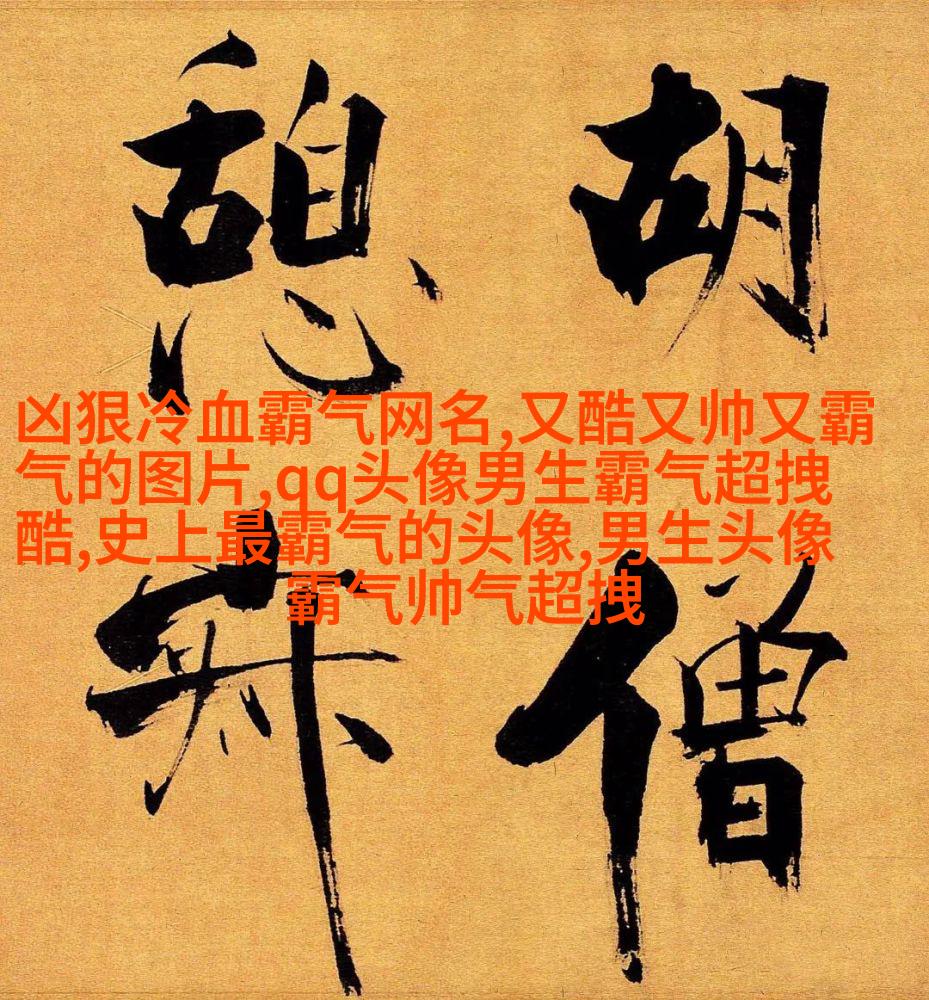 胡僧
憩寂
凶狠冷血霸气网名,又酷又帅又霸
气的图片,qq头像男生霸气超拽
酷,史上最霸气的头像,男生头像
霸气帅气超拽